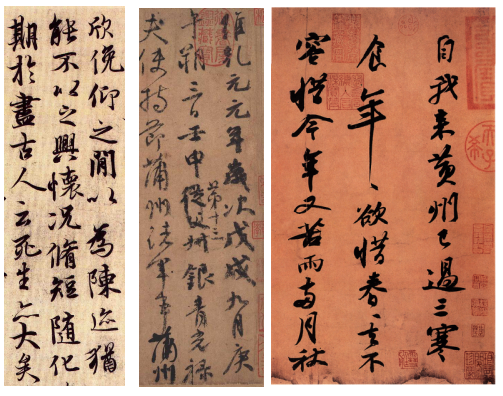 欣俛仰之閒以為陳迹猶
能不以之興懷況脩短隨化
期於盡古人云死生亦大矣
維乾元元年歲次戊戌九月庚
午朔三日壬申從父叔銀青光祿
第十三
夫使持節蒲州諸軍事蒲州
自我來黃州已過三寒
食年〻欲惜春〻去不
容惜今年又苦雨兩月秋